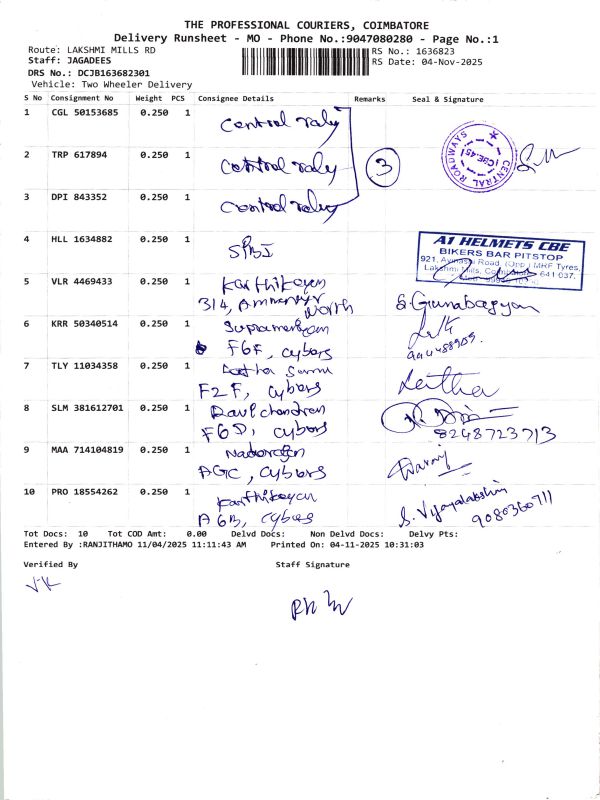 THE PROFESSIONAL COURIERS, COIMBATORE
Delivery Runsheet - MO - Phone No.:9047080280 - Page No.:1
Route: LAKSHMI MILLS RD
RS No.: 1636823
Staff: JAGADEES
RS Date: 04-Nov-2025
DRS No.: DCJB163682301
Vehicle: Two Wheeler Delivery
S No Consignment No Weight PCS Consignee Details Remarks Seal & Signature
1 CGL 50153685 0.250 1 Central
2 TRP 617894 0.250 1 Central
3
CENTRAL ROADWAYS
CBE-451
3 DPI 843352 0.250 1 Central
4 HLL 1634882 0.250 1
A1 HELMETS CBE
BIKERS BAR PITSTOP
921, Avinashi Road, (Opp.) MRF Tyres,
Lakshmi Mills, Coimbatore 641 037.
5 VLR 4469433 0.250 1 Karthikeyan
314, North
6 KRR 50340514 0.250 1
F6F, cybers
7 TLY 11034358 0.250 1
F2F, cybers
Leitha
8 SLM 381612701 0.250 1
F6D, cybers
8248723713
9 MAA 714104819 0.250 1
AGC, cybers
10 PRO 18554262 0.250 1 Karthikeyan
S. Vijayalakshmi
A6B, cybers
9080360711
Tot Docs: 10 Tot COD Amt: 0.00 Delvd Docs: Non Delvd Docs: Delvy Pts:
Entered By :RANJITHAMO 11/04/2025 11:11:43 AM Printed On: 04-11-2025 10:31:03
Verified By Staff Signature